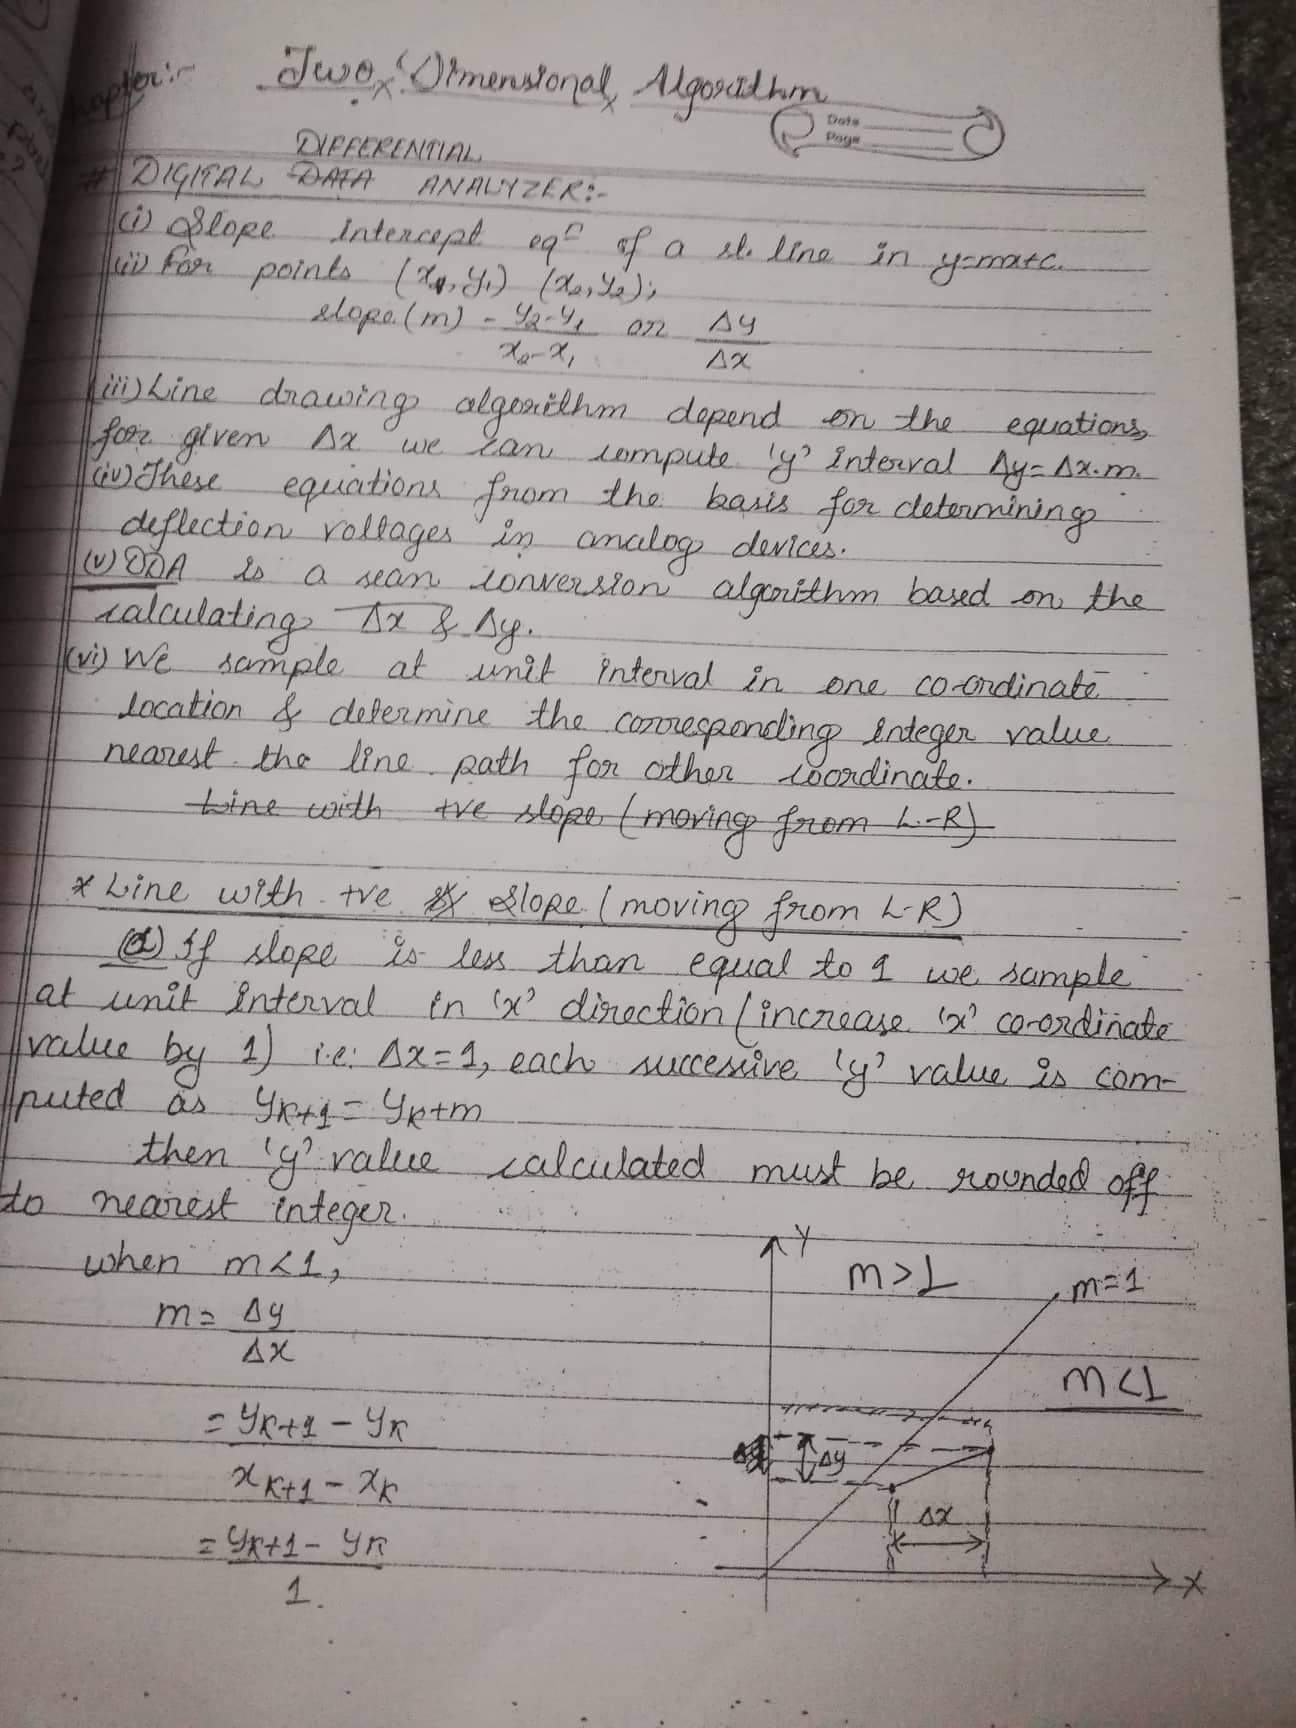 Chapter:- Two Dimensional Algorithm
Date
Page
DIFFERENTIAL
# DIGITAL DATA ANALYZER:-
(i) Slope intercept eqn of a st. line in y=mx+c.
(ii) For points (x1, y1) (x2, y2);
slope (m) = y2-y1 / x2-x1 or Δy / Δx
(iii) Line drawing algorithm depend on the equations,
for given Δx we can compute 'y' interval Δy= Δx.m.
(iv) These equations from the basis for determining
deflection voltages in analog devices.
(v) DDA is a scan conversion algorithm based on the
calculating Δx & Δy.
(vi) We sample at unit interval in one co-ordinate
location & determine the corresponding integer value
nearest the line path for other coordinate.
Line with +ve slope (moving from L-R)
* Line with +ve slope (moving from L-R)
(a) If slope is less than equal to 1 we sample
at unit interval in 'x' direction (increase 'x' co-ordinate
value by 1) i.e: Δx=1, each successive 'y' value is com-
puted as yk+1 = yk+m
then 'y' value calculated must be rounded off
to nearest integer.
when m<1,
m= Δy / Δx
= yk+1 - yk / xk+1 - xk
= yk+1 - yk / 1.
Y
m>1
m=1
m<1
Δy
Δx
X